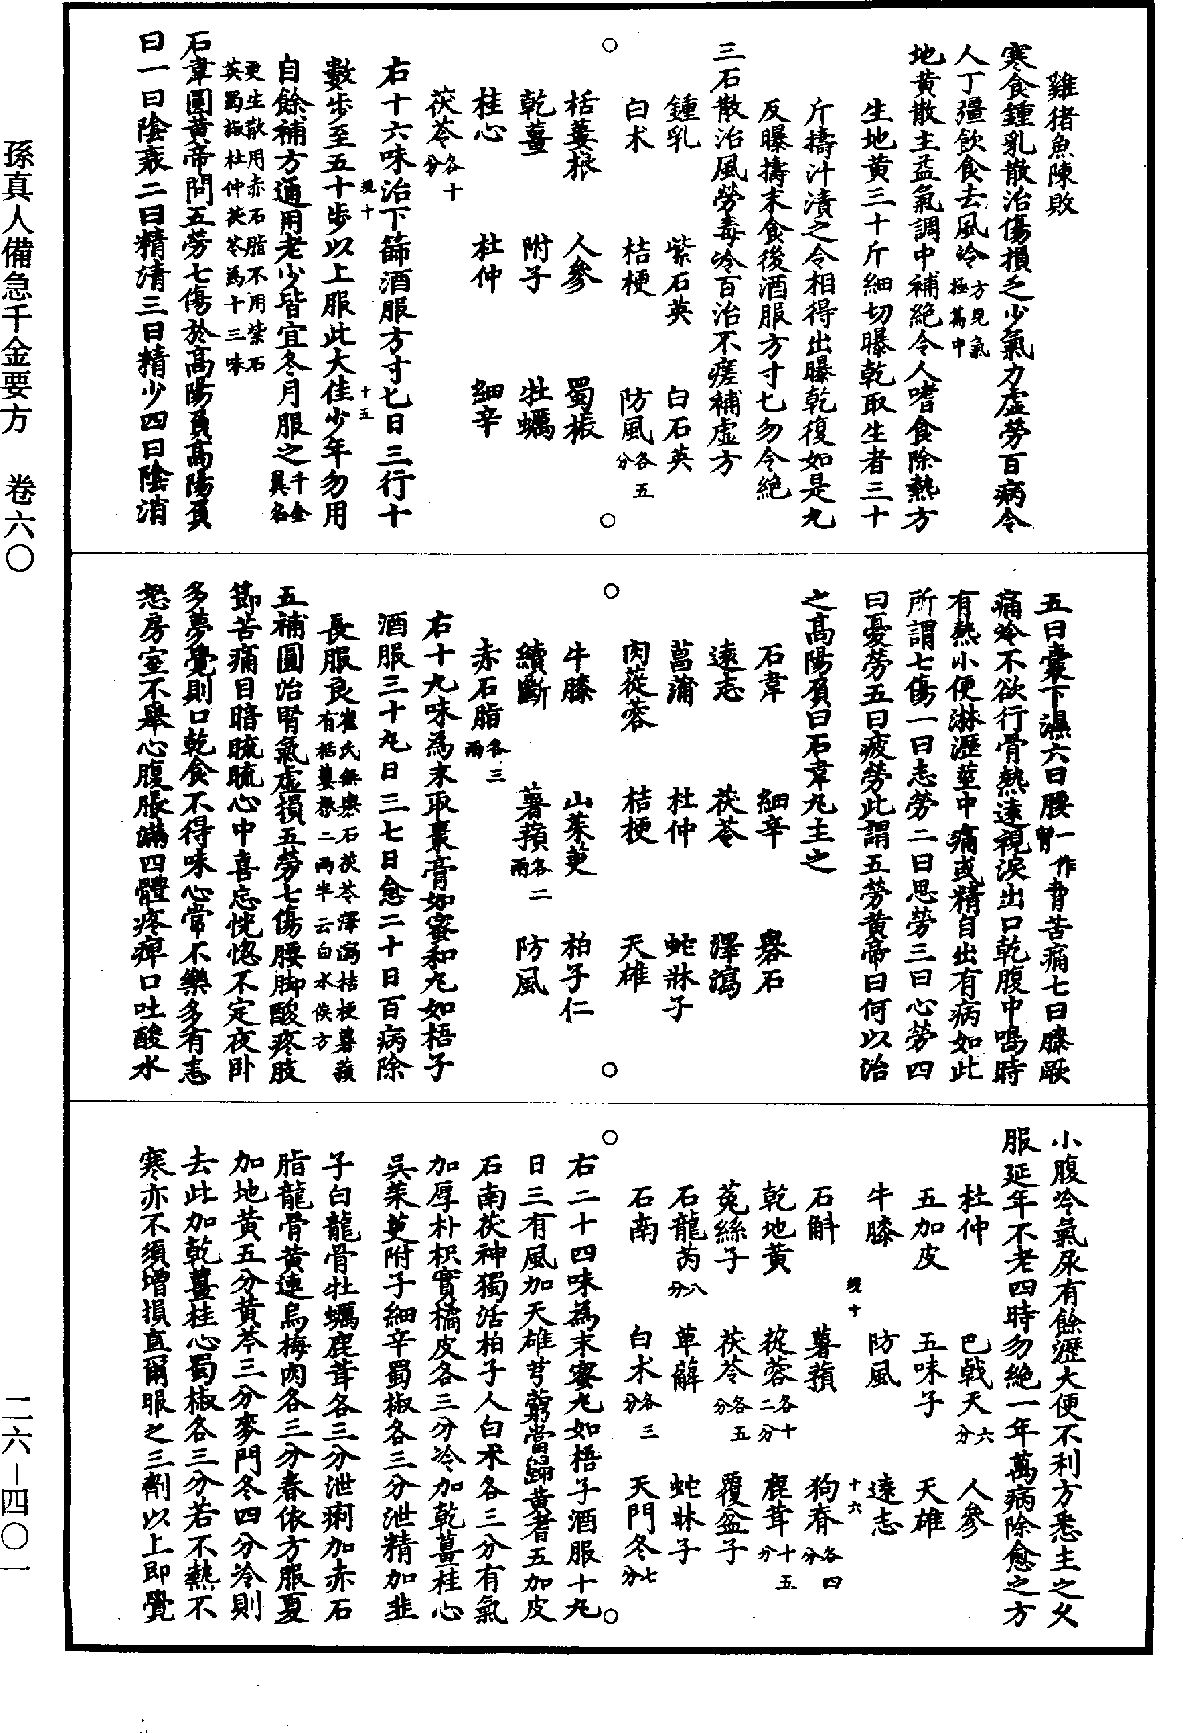 雞猪魚陳敗
寒食鍾乳散治傷損乏少氣力虛勞百病令
人丁彊飲食去風冷方見氣極篇中
地黃散主益氣調中補絕令人嗜食除熱方
生地黃三十斤細切曝乾取生者三十
斤擣汁漬之令相得出曝乾復如是九
反曝擣末食後酒服方寸匕勿令絕
三石散治風勞毒冷百治不瘥補虛方
鍾乳 紫石英 白石英
白朮 桔梗 防風各五分
栝蔞根 人參 蜀椒
乾薑 附子 牡蠣
桂心 杜仲 細辛
茯苓各十分
右十六味治下篩酒服方寸匕日三行十
數步至五十步以上服此大佳少年勿用
自餘補方通用老少皆宜冬月服之千金翼名
更生散用赤石脂不用紫石英蜀椒杜仲茯苓為十三味
石韋圓黃帝問五勞七傷於高陽負高陽負
曰一曰陰衰二曰精清三曰精少四曰陰消
五曰囊下濕六曰腰一作胷脅苦痛七曰膝厥
痛冷不欲行骨熱遠視淚出口乾腹中鳴時
有熱小便淋瀝莖中痛或精自出有病如此
所謂七傷一曰志勞二曰思勞三曰心勞四
曰憂勞五曰疲勞此謂五勞黃帝曰何以治
之高陽負曰石韋丸主之
石韋 細辛 礬石
遠志 茯苓 澤瀉
菖蒲 杜仲 蛇牀子
肉蓯蓉 桔梗 天雄
牛膝 山茱萸 柏子仁
續斷 薯蕷各二兩 防風
赤石脂各三兩
右十九味為末取棗膏如蜜和丸如梧子
酒服三十丸日三七日愈二十日百病除
長服良崔氏無礬石茯苓澤瀉桔梗薯蕷有栝蔞根二兩半云白水侯方
五補圓治腎氣虛損五勞七傷腰脚酸疼肢
節苦痛目暗䀮䀮心中喜忘恍惚不定夜臥
多夢覺則口乾食不得味心常不樂多有恚
怒房室不舉心腹脹滿四體疼痺口吐酸水
小腹冷氣尿有餘瀝大便不利方悉主之久
服延年不老四時勿絕一年萬病除愈之方
杜仲 巴戟天六分 人參
五加皮 五味子 天雄
牛膝 防風 遠志
石斛 薯蕷 狗脊各四分
乾地黃 蓯蓉各十二分 鹿茸十五分
菟絲子 茯苓各五分 覆盆子
石龍芮八分 萆薢 蛇牀子
石南 白朮各三分 天門冬七分
右二十四味為末蜜丸如梧子酒服十丸
日三有風加天雄芎藭當歸黃耆五加皮
石南茯神獨活柏子人白朮各三分有氣
加厚朴枳實橘皮各三分冷加乾薑桂心
吳茱萸附子細辛蜀椒各三分泄精加韭
子白龍骨牡蠣鹿茸各三分泄痢加赤石
脂龍骨黃連烏梅肉各三分春依方服夏
加地黃五分黃芩三分麥門冬四分冷則
去此加乾薑桂心蜀椒各三分若不熱不
寒亦不須增損直爾服之三劑以上即覺
孫真人備急千金要方 卷六〇
二六－四〇一